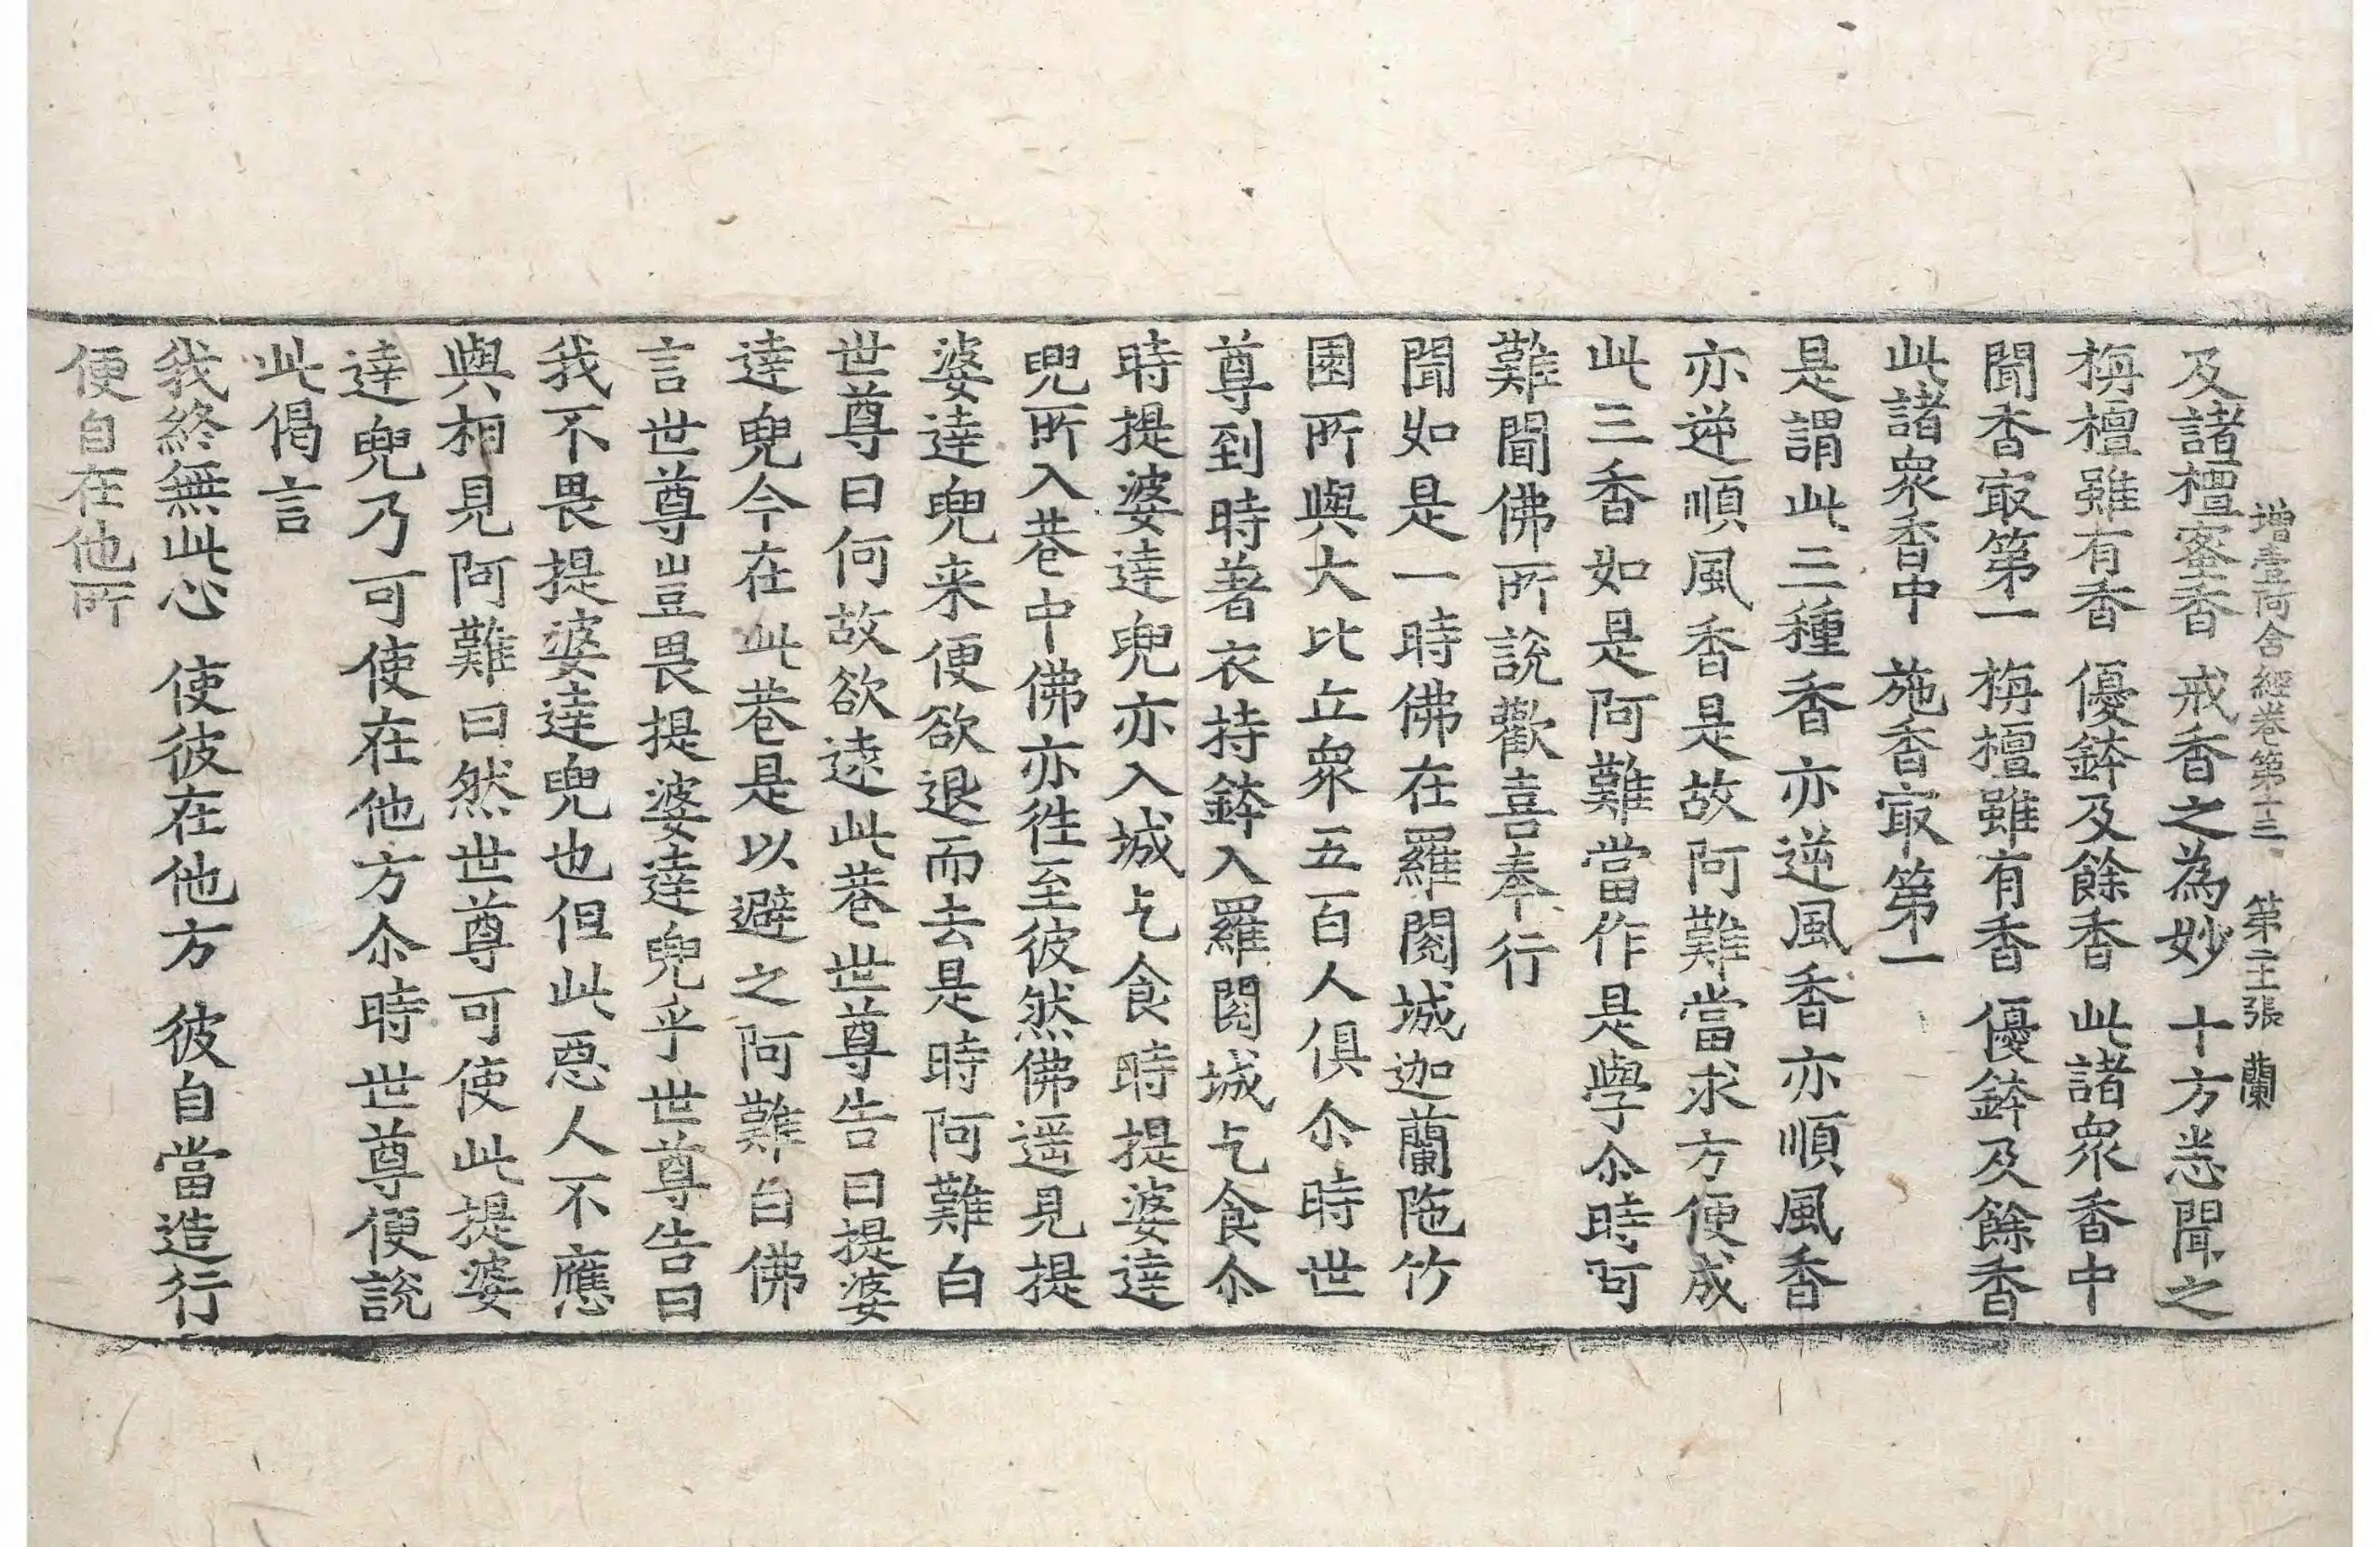 增壹阿含經卷第十三 第二張 蘭
及諸檀蜜香 戒香之為妙 十方悉聞之
栴檀雖有香 優鉢及餘香 此諸衆香中
聞香㝡第一 栴檀雖有香 優鉢及餘香
此諸衆香中 施香㝡第一
是謂此三種香亦逆風香亦順風香
亦逆順風香是故阿難當求方便成
此三香如是阿難當作是學尒時阿
難聞佛所說歡喜奉行
聞如是一時佛在羅閱城迦蘭陁竹
園所與大比丘衆五百人俱尒時世
尊到時著衣持鉢入羅閱城乞食尒
時提婆達兜亦入城乞食時提婆達
兜所入巷中佛亦往至彼然佛遥見提
婆達兜来便欲退而去是時阿難白
世尊曰何故欲逺此巷世尊告曰提婆
達兜今在此巷是以避之阿難白佛
言世尊豈畏提婆達兜乎世尊告曰
我不畏提婆達兜也但此惡人不應
與相見阿難曰然世尊可使此提婆
達兜乃可使在他方尒時世尊便說
此偈言
我終無此心 使彼在他方 彼自當造行
便自在他所